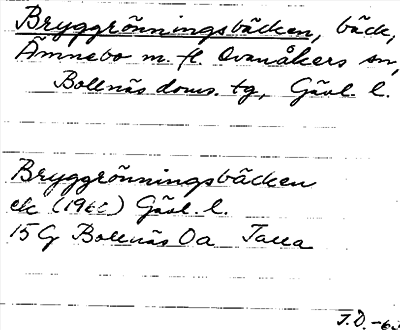 Bryggrönningsbäcken, bäck,
Ämnebo m. fl. Ovanåkers sn,
Bollnäs doms. tg, Gävl. l.
Bryggrönningsbäcken
ek (196) Gävl. l.
15 G Bollnäs Oa
J.D. -63